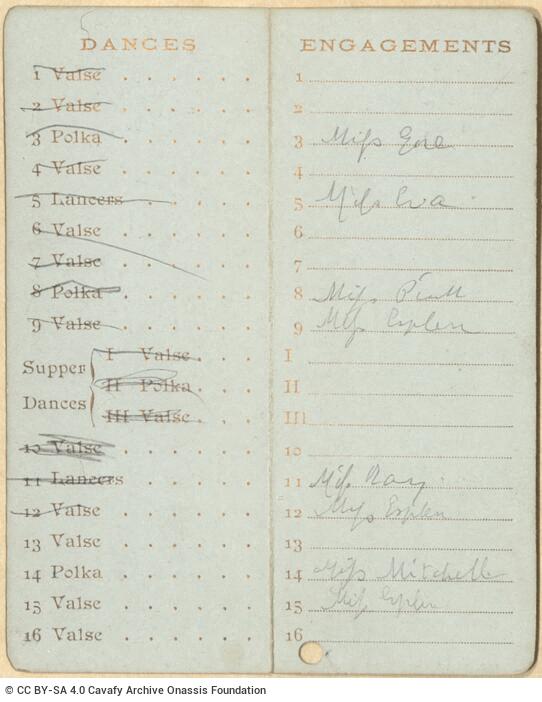 DANCES
1 Valse
2 Valse
3 Polka
4 Valse
5 Lancers
6 Valse
7 Valse
8 Polka
9 Valse
Supper Dances
I Valse
II Polka
III Valse
10 Valse
11 Lancers
12 Valse
13 Valse
14 Polka
15 Valse
16 Valse
ENGAGEMENTS
1
2
3 Miss
4
5 Miss Eva
6
7
8 Miss
9 Miss Esplen
I
II
III
10
11 Miss
12 Miss Esplen
13
14 Miss Mitchell
15 Miss Esplen
16
© CC BY-SA 4.0 Cavafy Archive Onassis Foundation